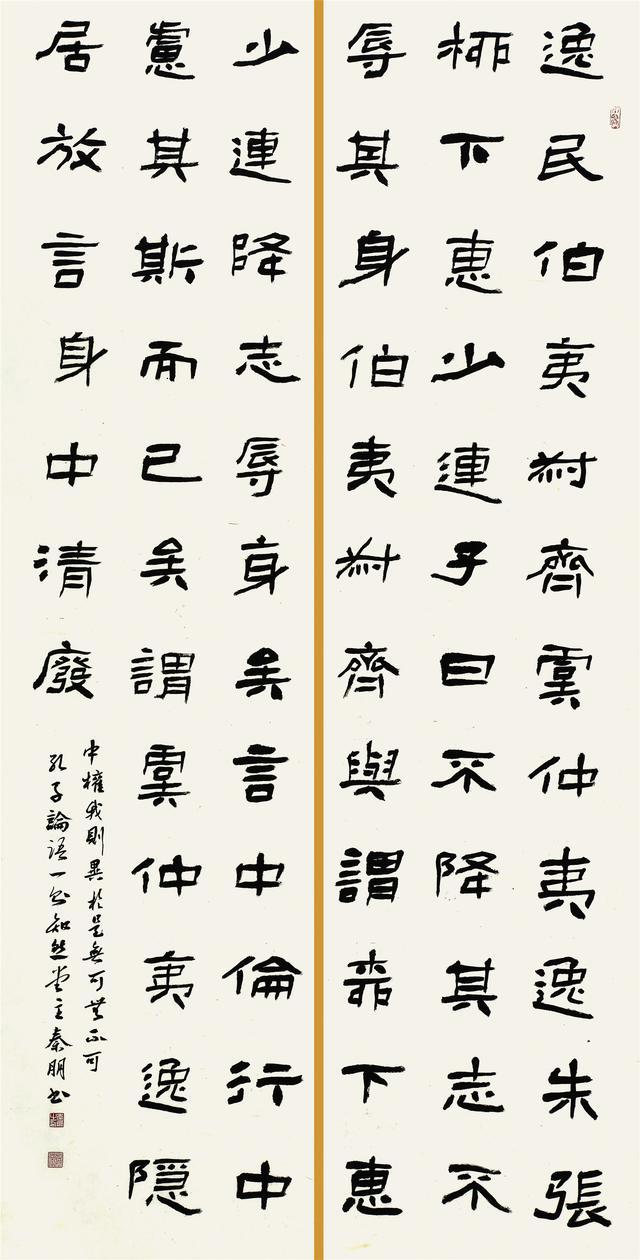 逸民伯夷叔齊虞仲夷逸朱張
柳下惠少連子曰不降其志不
辱其身伯夷叔齊與謂柳下惠
少連降志辱身矣言中倫行中
慮其斯而已矣謂虞仲夷逸隱
居放言身中清廢
中權我則異於是無可無不可
孔子論語一知然堂主秦朋书